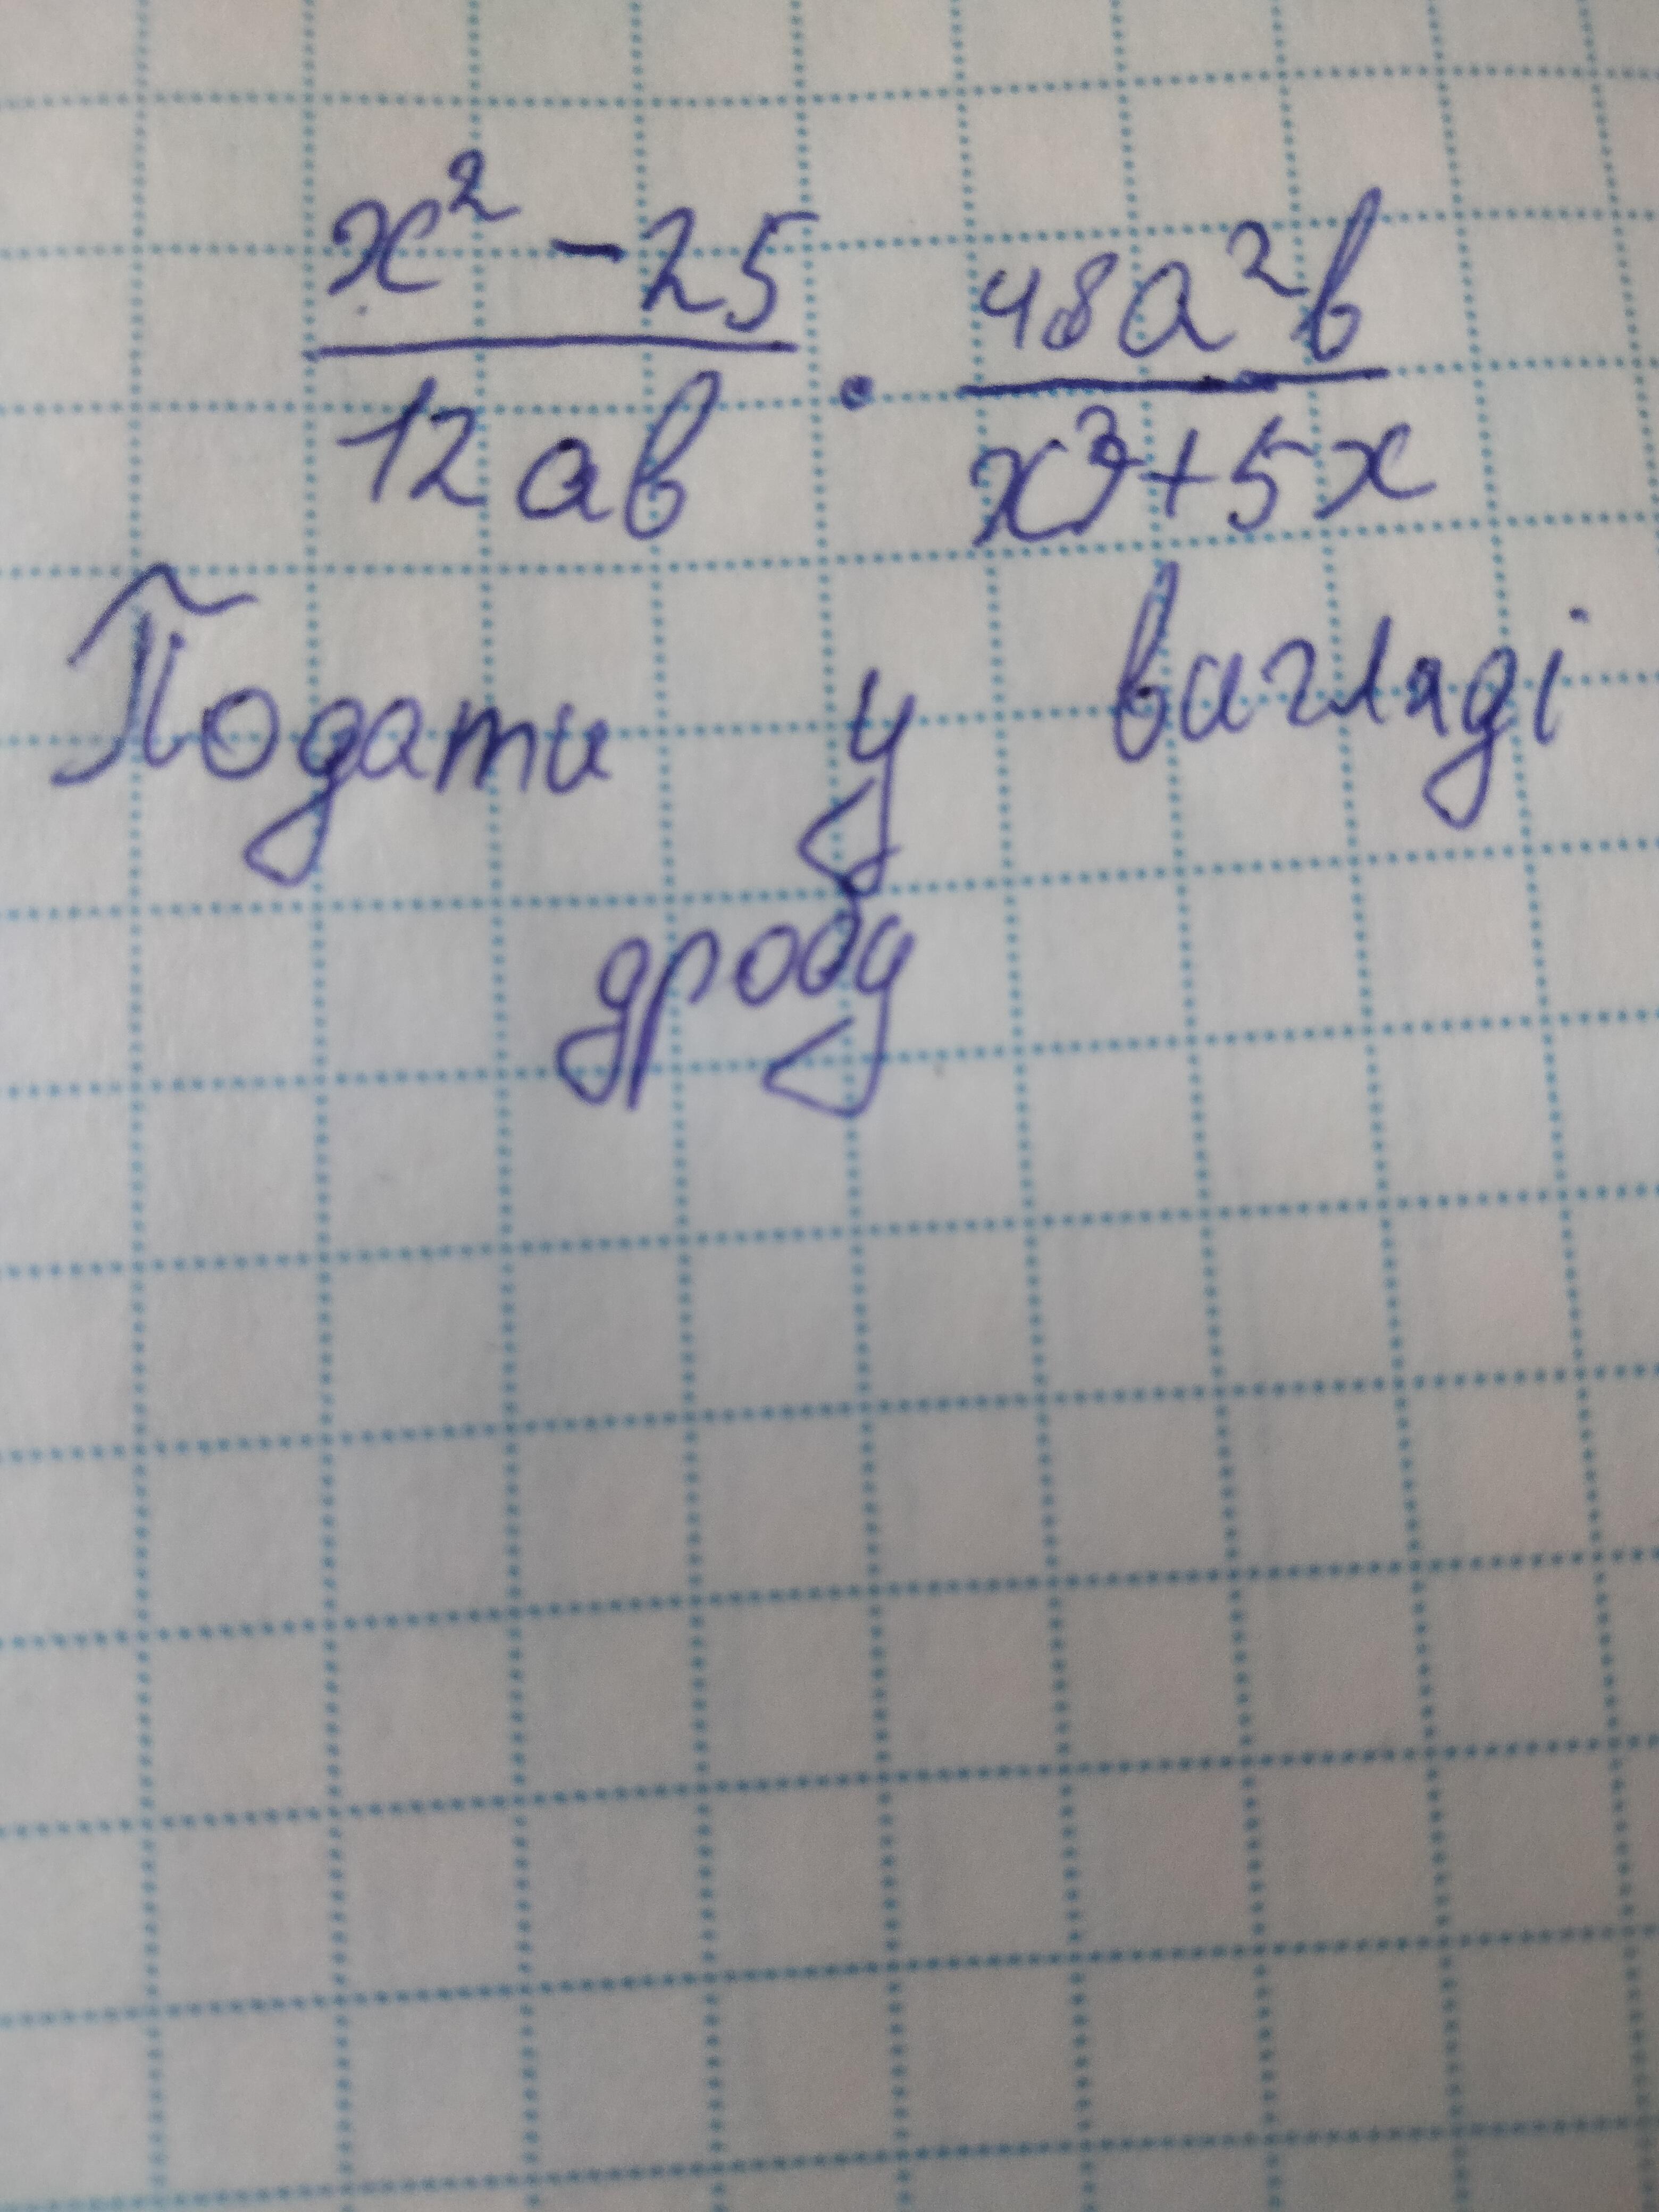 x² - 25 / 12ab · 48a²b / x² + 5x
Подати у вигляді
дробу